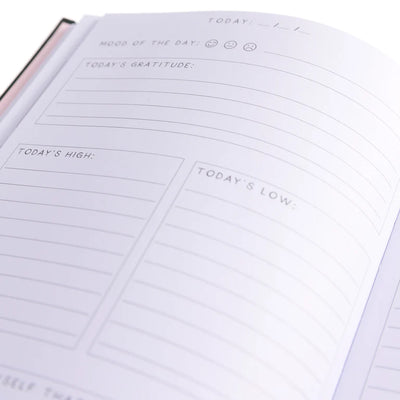 TODAY: __/__/__
MOOD OF THE DAY:
TODAY'S GRATITUDE:
TODAY'S HIGH:
TODAY'S LOW: